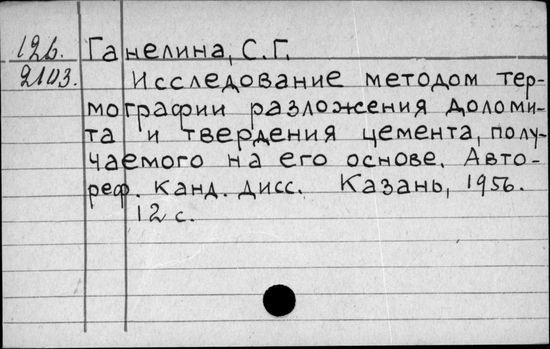 12б. Ганелина, С.Г.
2103. Исследование методом тер-
мографии разложения доломи-
та и твердения цемента, полу-
чаемого на его основе. Авто-
реф. канд. дисс. Казань, 1956.
12 с.